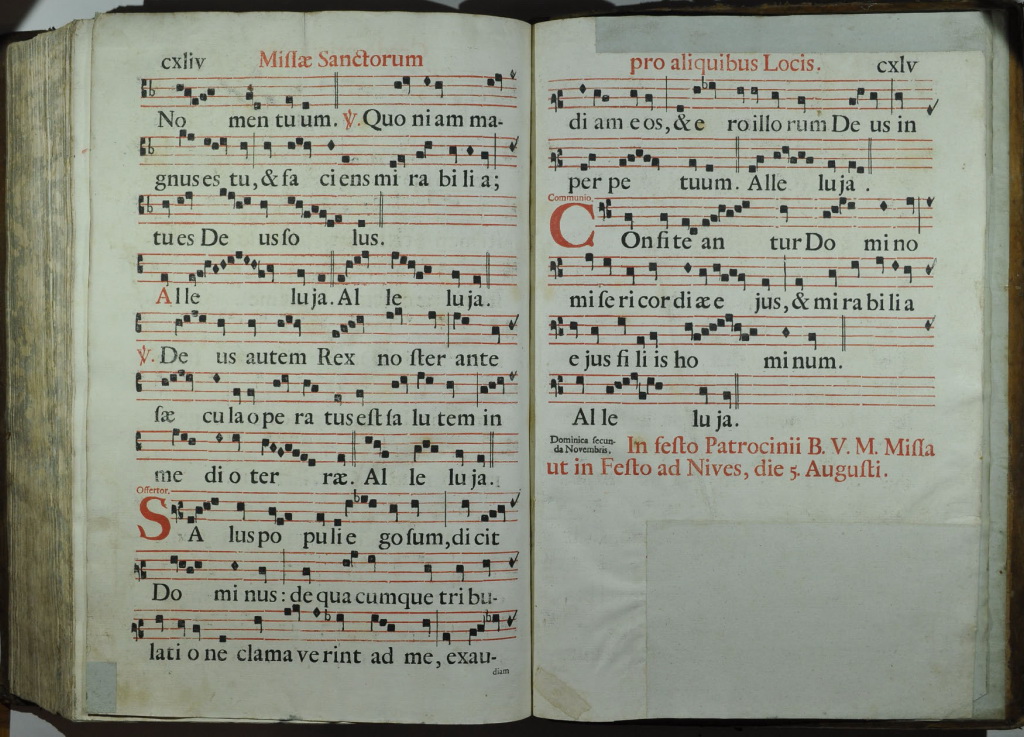 cxliv Miſſæ Sanctorum
No men tu um. ℣. Quo ni am ma-
gnus es tu, & fa ci ens mi ra bi li a;
tu es De us ſo lus.
Alle luja. Al le luja.
℣. De us autem Rex no ſter ante
ſæ cu la o pe ra tus eſt ſa lu tem in
me di o ter ræ. Al le luja.
Offertor.
SA lus po pu li e go ſum, di cit
Do mi nus : de qua cumque tri bu-
lati o ne clama ve rint ad me, exau-
diam
pro aliquibus Locis. cxlv
di am e os, & e ro illo rum De us in
per pe tuum. Alle luja .
Communio.
COnfite an tur Do mi no
mi ſe ri cor di æ e jus, & mi ra bi li a
e jus fi li is ho mi num.
Al le lu ja.
Dominica ſecun-
da Novembris. In feſto Patrocinii B. V. M. Miſſa
ut in Feſto ad Nives, die 5. Auguſti.